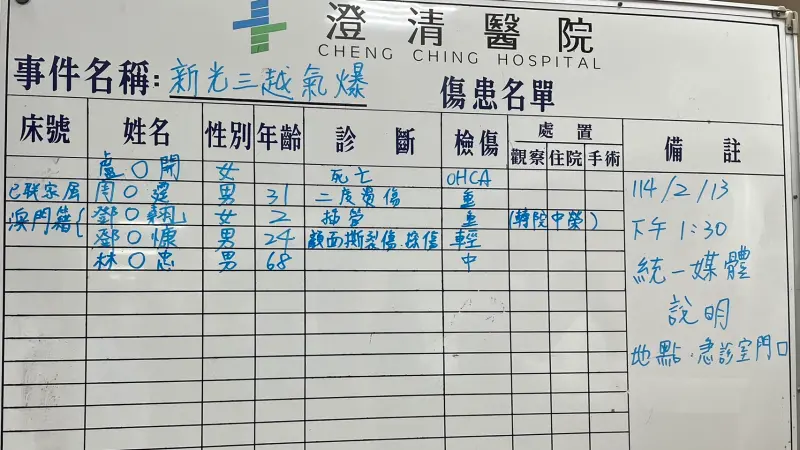 澄清醫院
CHENG CHING HOSPITAL
事件名稱: 新光三越氣爆 傷患名單
床號 姓名 性別 年齡 診斷 檢傷 處置 備註
觀察 住院 手術
盧〇開 女 死亡 OHCA
已聯家屬 周〇霆 男 31 二度燙傷 重
澳門籍{ 鄧〇 女 2 插管 重 (轉院中榮)
鄧〇慷 男 24 顏面撕裂傷.擦傷 輕
林〇忠 男 68 中
114/2/13
下午1:30
統一媒體
說明
地點.急診室門口